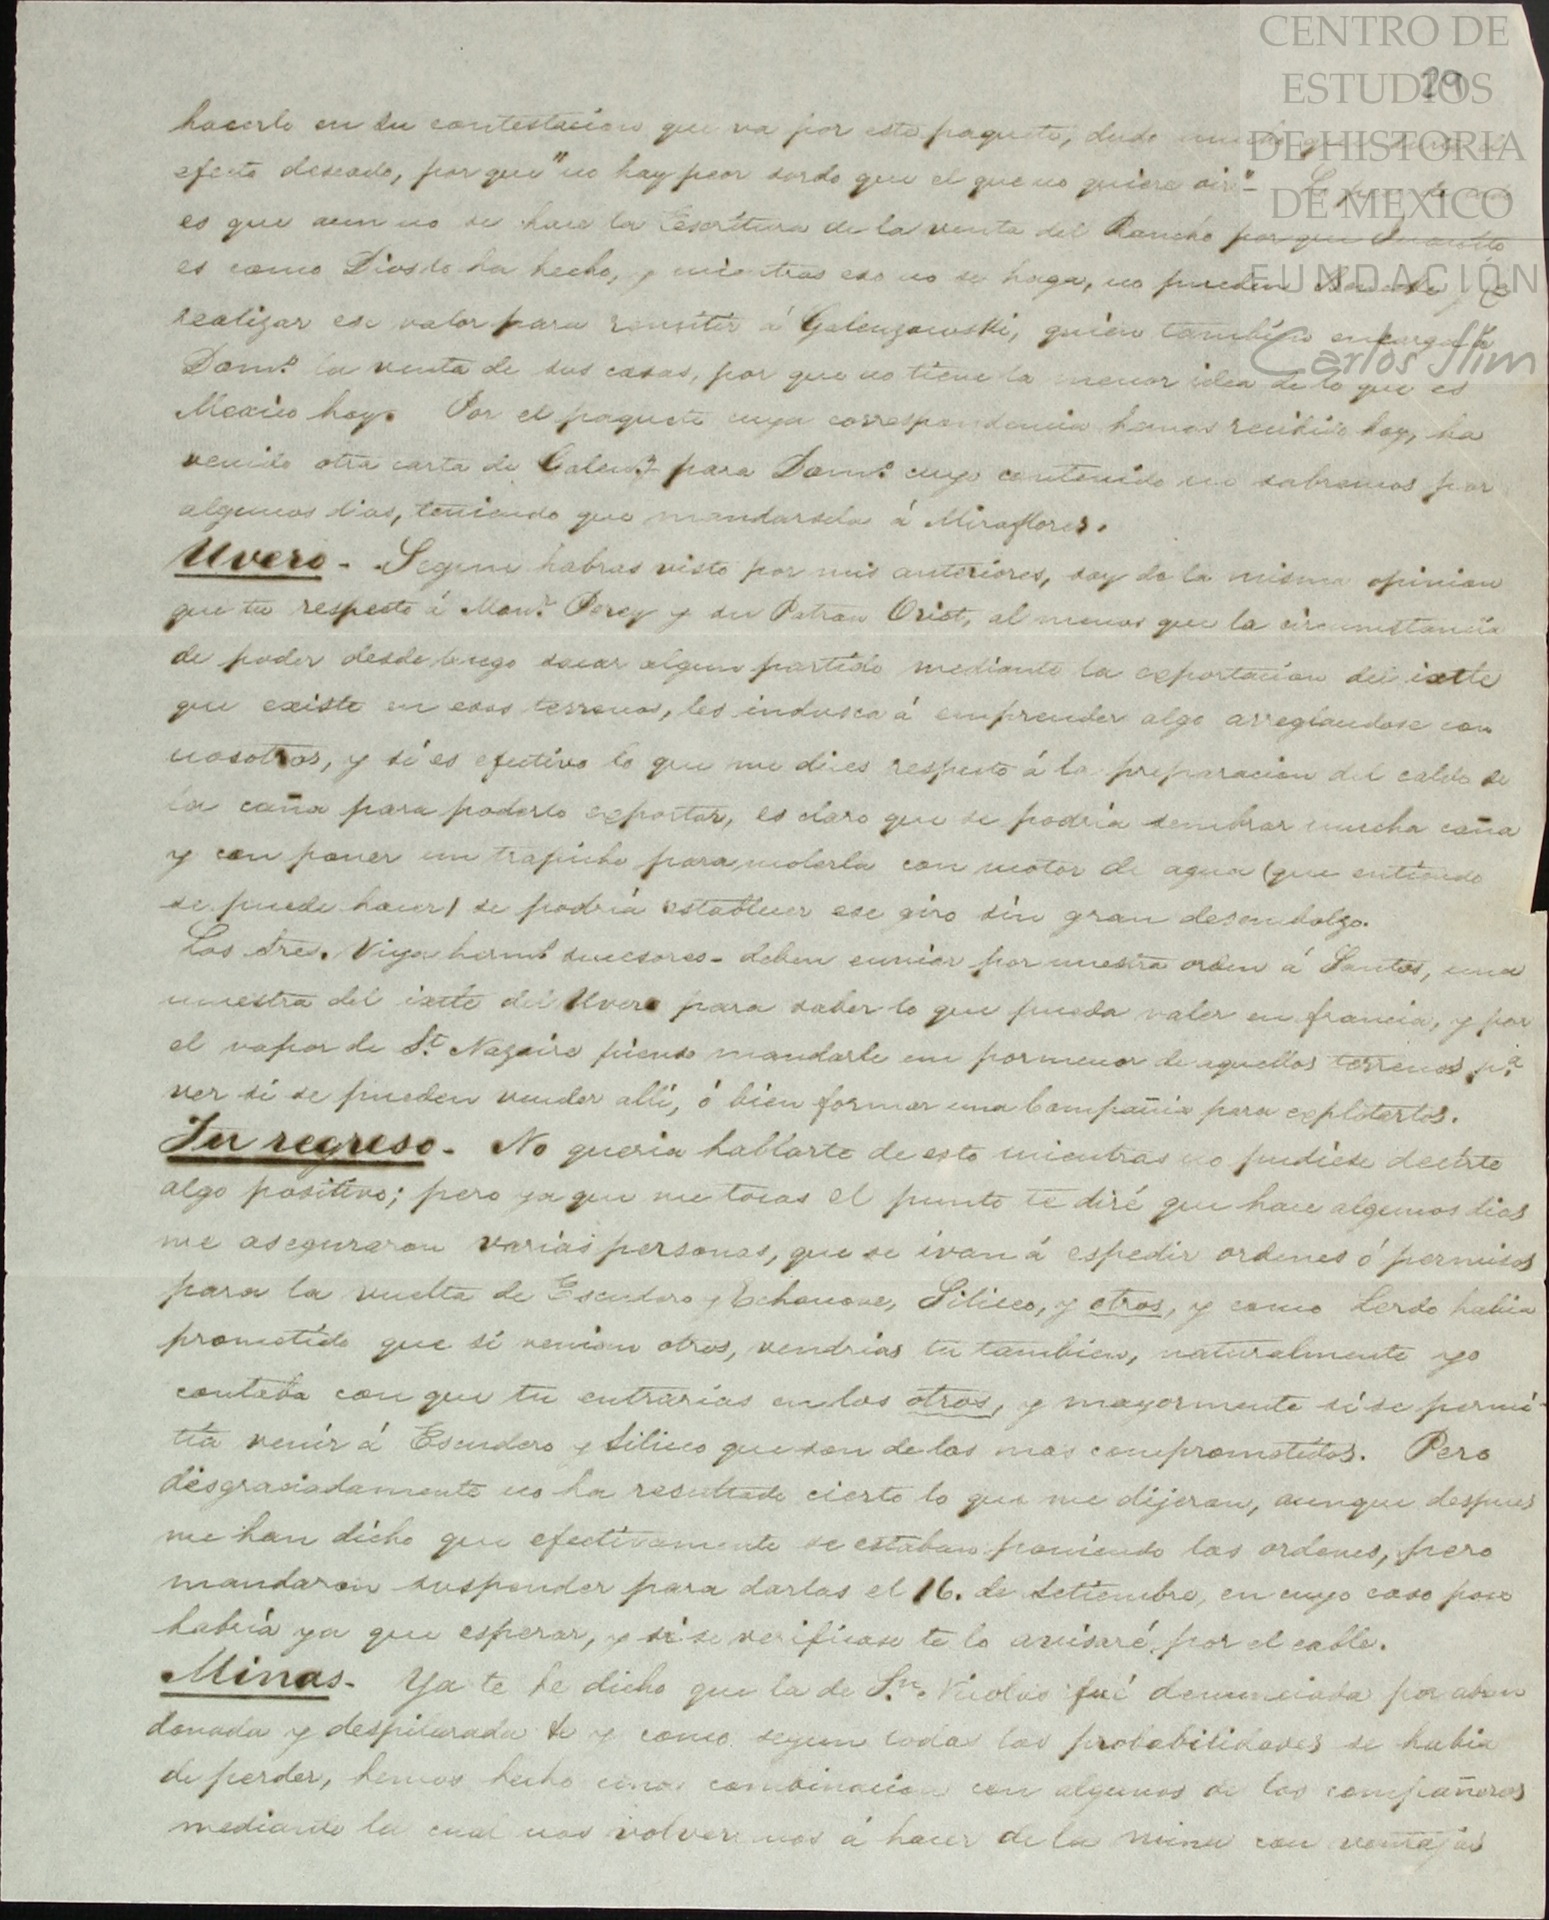 CENTRO DE
ESTUDIOS
DE HISTORIA
DE MEXICO
FUNDACIÓN
Carlos Slim
29
hacerlo en su contestacion que va por este paquete, dudo mucho que
efecto deseado, por que "no hay peor sordo que el que no quiere oir"-
es que aun no se hace la Escritura de la venta del Rancho por que
es como Dios lo ha hecho, y mientras eso no se haga, no pueden
realizar ese valor para remitir á Galenzowski, quien tambien encarga á
Domo. la venta de sus casas, por que no tiene la menor idea de lo que es
Mexico hoy. Por el paquete cuya correspondencia hemos recibido hoy, ha
venido otra carta de para Domo. cuyo contenido no sabremos por
algunos dias, teniendo que mandarsela á Miraflores.
Uvero - Segun habras visto por mis anteriores, soy de la misma opinion
que tu respecto á Monr. Perey y su Patron Orist, al menos que la circunstancia
de poder desde luego sacar algun partido mediante la esportacion del ixtle
que existe en esos terrenos, les indusca á emprender algo arreglandose con
nosotros, y si es efectivo lo que me dices respecto á la preparacion del caldo de
la caña para poderlo esportar, es claro que se podria sembrar mucha caña
y con poner un trapiche para molerla con motor de agua (que entiendo
se puede hacer) se podria establecer ese giro sin gran desembolzo.
Los Sres. Viya hermos. sucesores - deben enviar por nuestra orden á Santos, una
muestra del ixtle del Uvero para saber lo que pueda valer en francia, y por
el vapor de St. Nazaire pienso mandarle un pormenor de aquellos terrenos pa.
ver si se pueden vender allí, ó bien formar una Compañia para esplotarlos.
Tu regreso - No queria hablarte de esto mientras no pudiese decirte
algo positivo; pero ya que me tocas el punto te diré que hace algunos dias
me aseguraron varias personas, que se ivan á espedir ordenes ó permisos
para la vuelta de Escudero y Echanove, Siliceo, y otros, y como Lerdo habia
prometido que si venian otros, vendrias tu tambien, naturalmente yo
contaba con que tu entrarias en los otros, y mayormente si se permi-
tia venir á Escudero y Siliceo que son de los mas comprometidos. Pero
desgraciadamente no ha resultado cierto lo que me dijeron, aunque despues
me han dicho que efectivamente se estaban poniendo las ordenes, pero
mandaron suspender para darlas el 16. de Setiembre, en cuyo caso poco
habria ya que esperar, y si se verificase te lo avisaré por el cable.
Minas - Ya te he dicho que la de Sn. Nicolas fué denunciada por aban
donada y despilarada & y como segun todas las probabilidades se habia
de perder, hemos hecho una combinacion con algunos de los compañeros
mediante la cual nos volveremos á hacer de la mina con ventajas